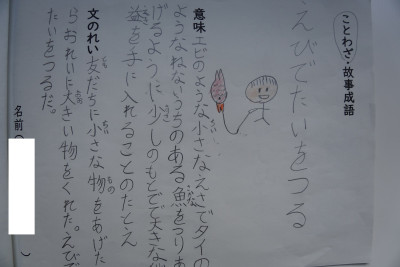 ことわざ・故事成語
えびでたいをつる
意味 エビのような小さなえさでタイの
ようなねうちのある魚をつりあ
げるように少しのもとでで大きな
益を手に入れることのたとえ
文のれい 友だちに小さな物をあげた
らおれいに大きい物をくれた。えびで
たいをつるだ。
名前